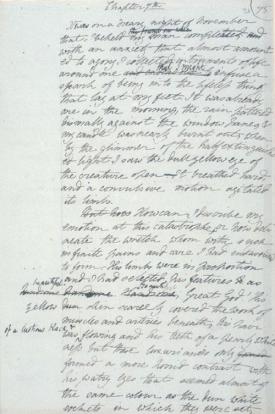 Chapter 7th
It was on a dreary night of November
that I beheld my man completed and
with an anxiety that almost amount
ed to agony I collected instruments of life
around me that I might infuse a
spark of being into the lifeless thing
that lay at my feet. It was already
one in the morning, the rain pattered
dismally against the window panes &
my candle was nearly burnt out, when
by the glimmer of the half extinguish
ed light I saw the dull yellow eye of
the creature open. It breathed hard,
and a convulsive motion agitated
its limbs.
But how How can I describe my
emotion at this catastrophe or how deli
neate the wretch whom with such
infinite pains and care I had endeavoured
to form. His limbs were in proportion
and I had selected his features as
handsome Great God! his
yellow
skin scarcely covered the work of
muscles and arteries beneath; his hair
of a lustrous black &
was flowing and his teeth of a pearly white
ness but these luxuriances only
formed a more horrid contrast with
his watry eyes that seemed almost of
the same colour as the dun white
sockets in which they were set,